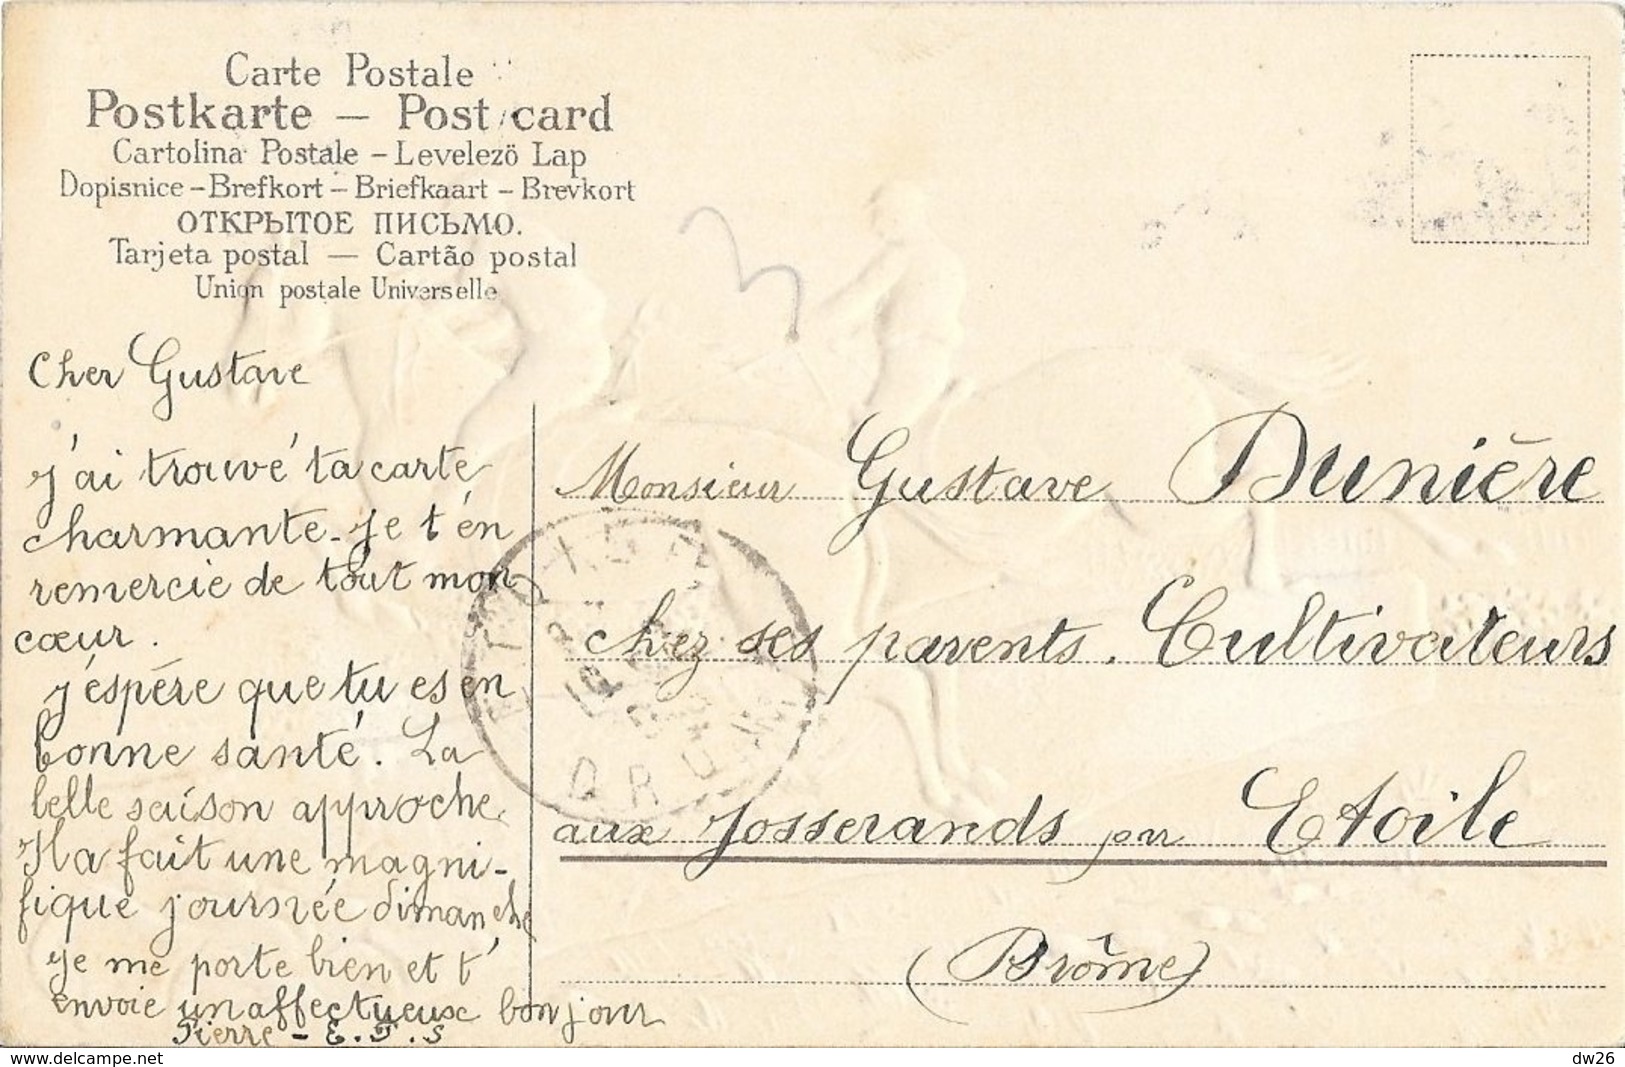 Carte Postale
Postkarte – Post card
Cartolina Postale – Levelezö Lap
Dopisnice – Brefkort – Briefkaart – Brevkort
ОТКРЫТОЕ ПИСЬМО.
Tarjeta postal — Cartão postal
Union postale Universelle
Cher Gustave
j'ai trouvé ta carte
charmante. Je t'en
remercie de tout mon
cœur.
j'espère que tu es en
bonne santé. La
belle saison approche.
Il a fait une magni-
fique journée dimanche
je me porte bien et t'
envoie un affectueux bonjour
Pierre - E. F. S
Monsieur Gustave Dunière
chez ses parents. Cultivateurs
aux Josserands par Etoile
(Drôme)
DROME
delcampe.net
dw26